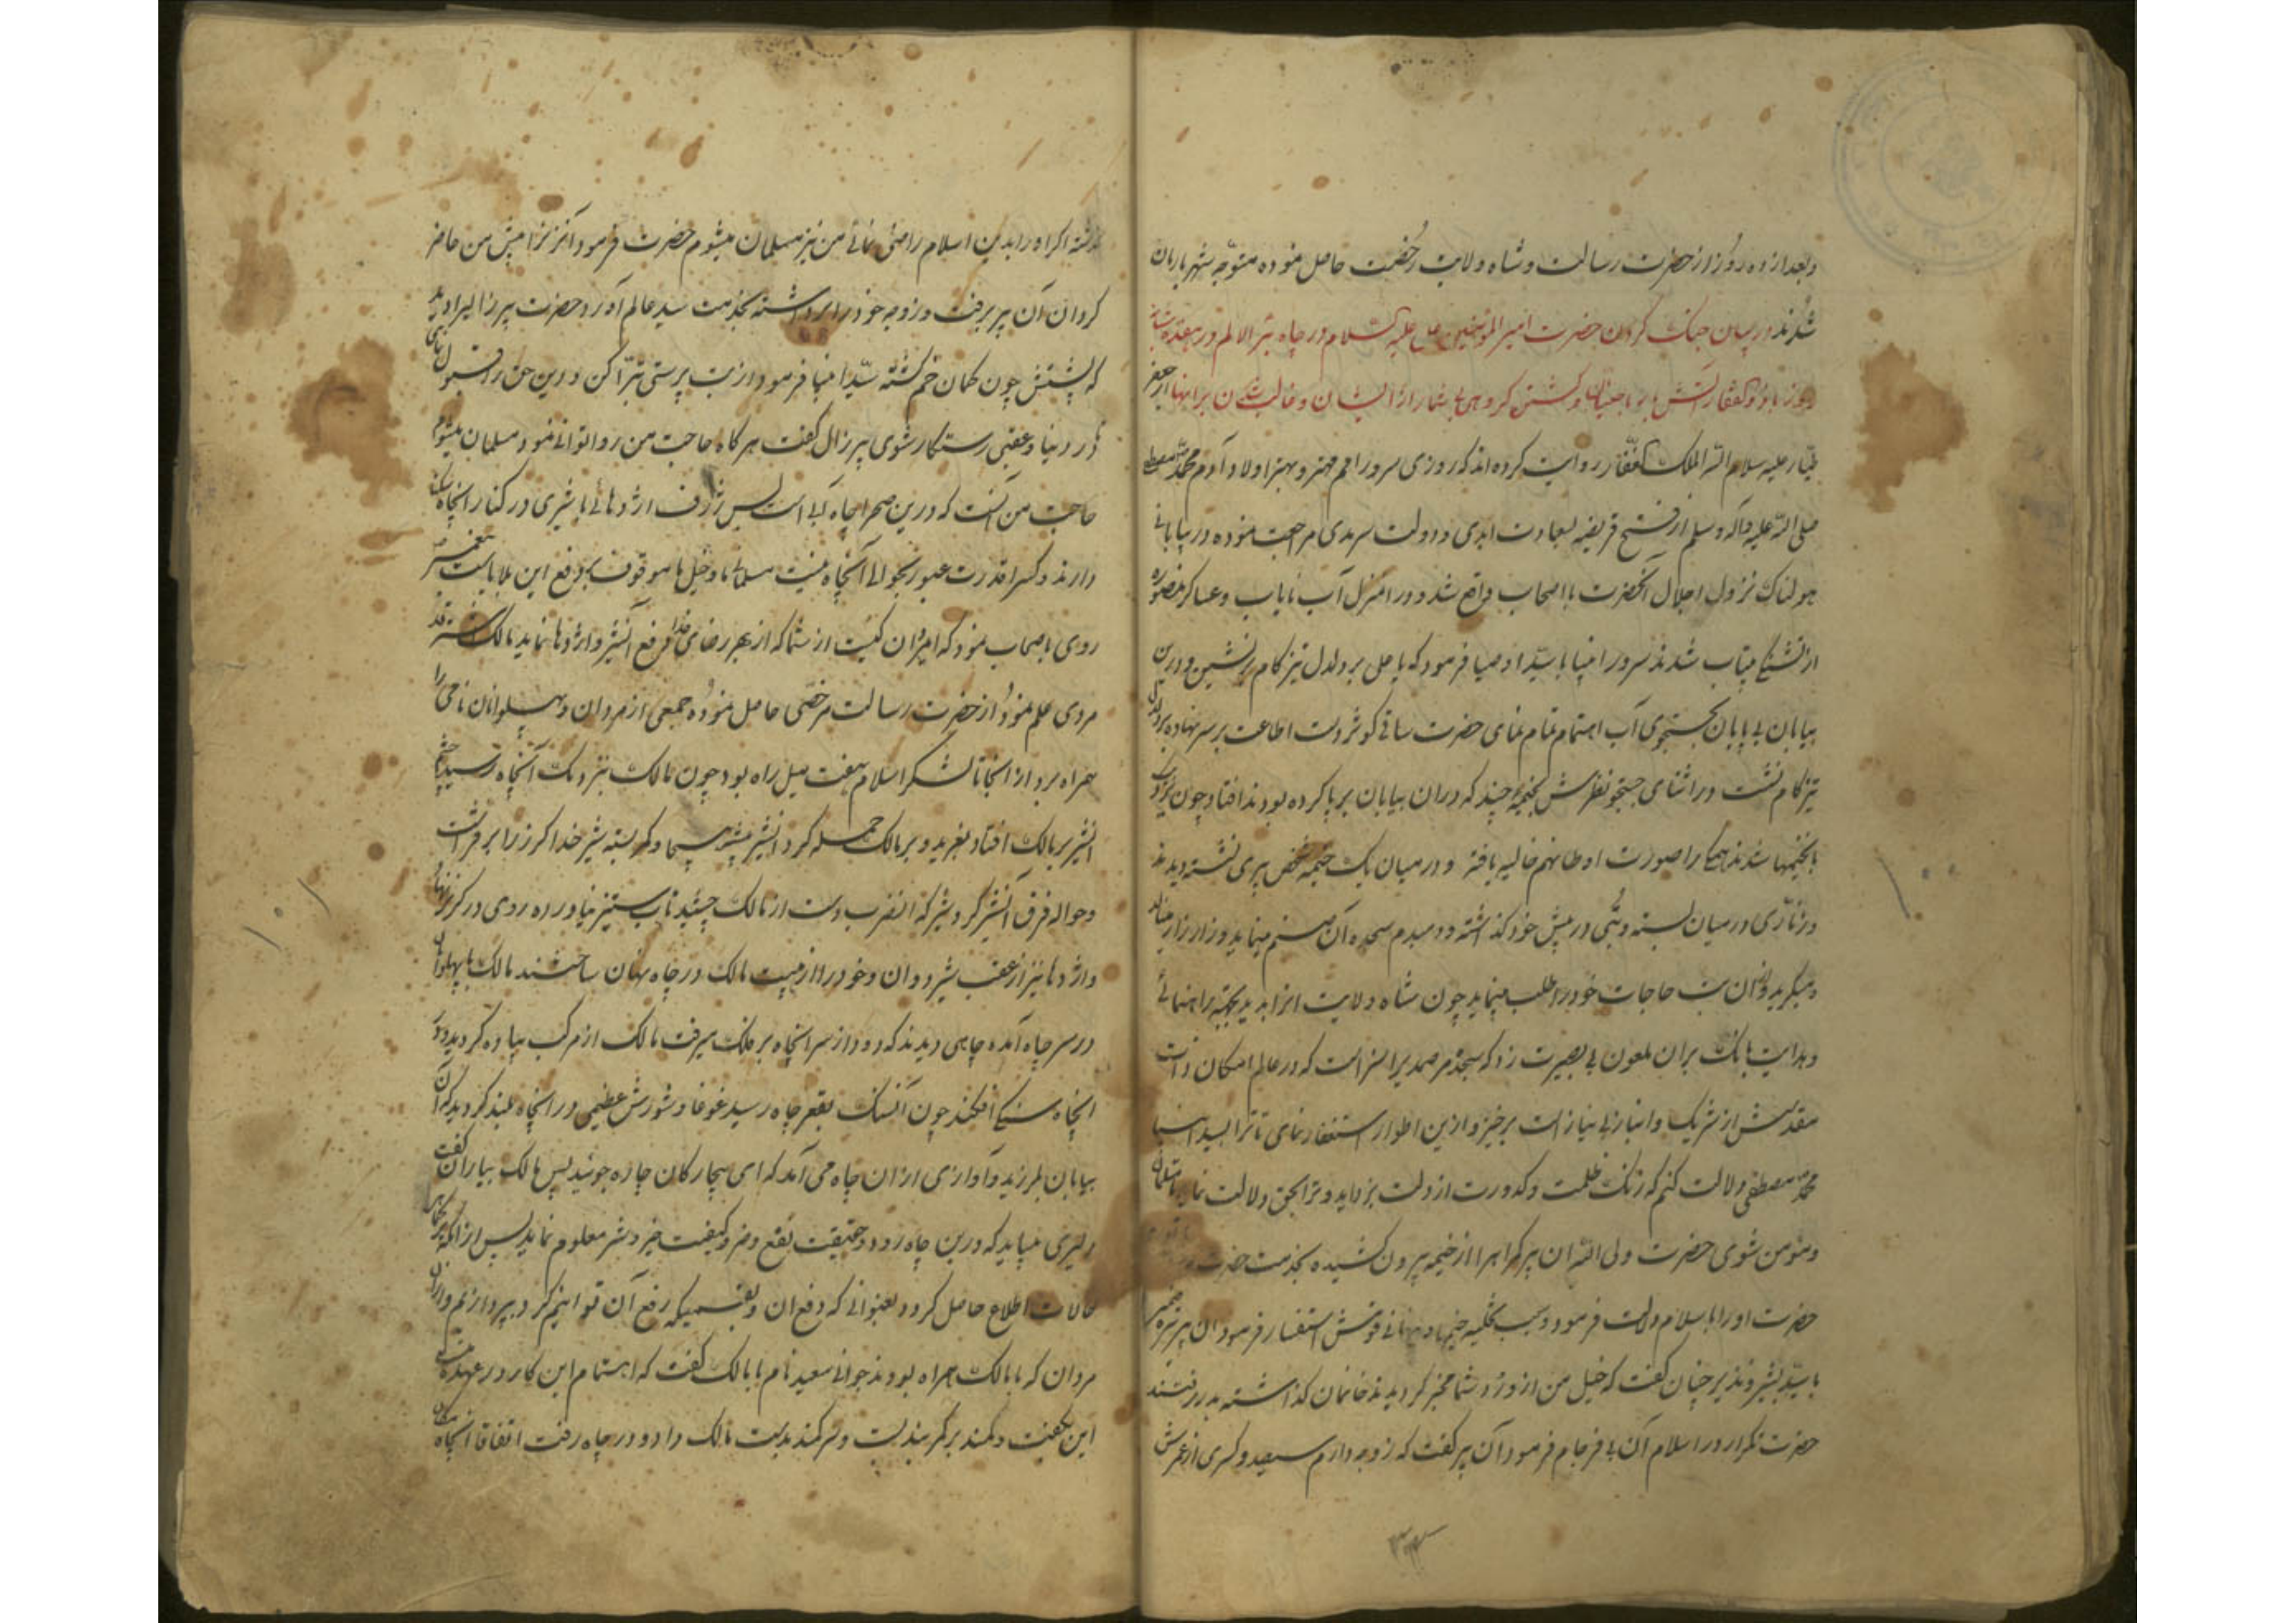 وبعد از ده روز از حضرت رسالت و شاه ولایت رخصت حاصل نموده متوجه شهر بازبان
شدند در بیان جنک کردن حضرت امیر المومنین علی علیه السلام در چاه بئر الالم در هفده شبان
روز با جنیان و کشتن کروهی بیشمار از ایشان و غالب شدن بر اینها از جعفر
طیار علیه سلام الله الملک الغفار روایت کرده اند که روزی سرور امم مهتر و بهتر اولاد آدم محمد مصطفی
صلی الله علیه وآله وسلم از فتح قریضه بسعادت ابدی و دولت سرمدی مراجعت نموده در بیابانی
هولناک نزول اجلال آنحضرت با اصحاب واقع شد و در آن منزل آب نایاب و عساکر منصوره
از تشنکی بیتاب شدند سرور انبیا با سید اوصیا فرمود که یا علی بر دلدل تیز کام برنشین و درین
بیابان بی پایان بجستجوی آب اهتمام تمام نمای حضرت ساقی کوثر دست اطاعت بر سر نهاده بر دلدل
تیز کام نشست در اثنای جستجو نظرش بخیمه چند که دران بیابان برپا کرده بودند افتاد چون نزدیک
بخیمها شدند همه را صورت اوطانهم خالیه یافته و در میان یک خیمه شخص پیری نشسته دیدند
و زناری در میان بسته و بتی در پیش خود کذاشته و دمبدم سجده آن صنم مینماید و زار زار مینالد
و میکرید و از ان بت حاجات خود را طلب مینماید چون شاه ولایت انرا بدید بجهة راهنمائی
و هدایت بانک بران ملعون بی بصیرت زد که سجده مر صمدیرا سزاست که در عالم امکان ذات
مقدسش از شریک و انباز بی نیاز است برخیز و ازین اطوار استغفار نمای تا ترا بسید انبیا
محمد مصطفی دلالت کنم که زنک ظلمت و کدورت از دلت بزداید و ترا بحق دلالت نماید تا مسلمان
و مومن شوی حضرت ولی الله ان پیر کمراه را از خیمه بیرون کشیده بخدمت حضرت
حضرت او را باسلام دلالت فرمود و سبب تخلیه خیمها و تنهائی قومش استفسار فرمود ان پیر تیره ضمیر
با سید بشیر و نذیر چنان کفت که خیل من از ورود شما مخبر کردیدند خانمان کذاشته بدر رفتند
حضرت تکرار در اسلام آن بی فرجام فرمود آن پیر کفت که زوجه دارم سیصد و کسری از عمرش
کذشته اکر او را بدین اسلام راضی نمائی من نیز مسلمان میشوم حضرت فرمود آنزنرا پیش من حاضر
کردان آن پیر برفت و زوجه خود را برداشته بخدمت سید عالم آورد حضرت پیر زالیرا دید
که پشتش چون کمان خم کشته سید انبیا فرمود از بت پرستی تبرا کن و دین حق را قبول نمای
تا در دنیا و عقبی رستکار شوی پیر زال کفت هر کاه حاجت من روا توانی نمود مسلمان میشوم
حاجت من آنست که درین صحرا چاه آبی است بس ژرف اژدهائی با شیری در کنار انچاه مسکن
دارند و کسرا قدرت عبور بحوالی آنچاه نیست مسلمانی ما و خیل ما موقوف بدفع این بلا یاست پیغمبر
روی باصحاب نمود که امیزان کیست از شما که از بهر رضای خدا دفع آنشیر و اژدها نماید مالک اشتر قد
مردی علم نمود و از حضرت رسالت مرخصی حاصل نموده جمعی از مردان و پهلوانان نامی را
همراه برد از انجا تا لشکر اسلام هفت میل راه بود چون مالک بنزدیک آنچاه رسید چشم
انشیر بر مالک افتاد بغرید و بر مالک حمله کرد
و حواله فرق آنشیر کرد شیر که انضرب دست از مالک چشید تاب ستیز نیاورده روی در کریز نهاد
و اژدها نیز از عقب شیر دوان و خود را از هیبت مالک در چاه پنهان ساختند مالک با پهلوانان
در سر چاه آمده چاهی دیدند که دود از سر انچاه بر فلک میرفت مالک از مرکب پیاده کردید و در
انچاه سنکی افکند چون آنسنک بقعر چاه رسید غوغا و شورش عظیمی در انچاه بلند کردید که آن
بیابان بلرزید و آوازی از ان چاه می آمد که ای بیچارکان چاره جوئید پس مالک بیاران کفت
دلیری میباید که درین چاه رود و حقیقت نفع و ضر و کیفیت خیر و شر معلوم نماید پس از آنکه بر
حالات اطلاع حاصل کرد و بعنوانی که دفع ان و بقسمیکه رفع آن توانیم کرد بپردازیم و از ان
مردان که با مالک همراه بودند جوانی سعید نام با مالک کفت که اهتمام این کار در عهده منست
این بکفت و کمند بر کمر بند بست و سر کمند بدست مالک داد و در چاه رفت اتفاقا انچاه